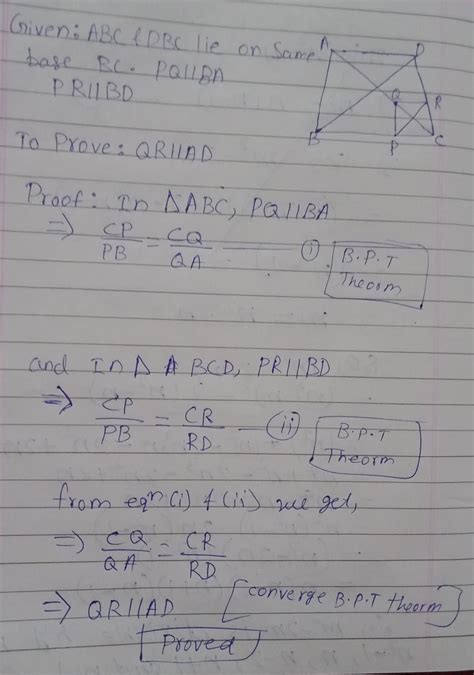 Given: ABC & DBC lie on Same
base BC. PQ||BA
PR||BD
A D
Q R
B P C
To Prove: QR||AD
Proof: In ΔABC, PQ||BA
⇒ CP/PB = CQ/QA — (i) B.P.T
Theorm
and In Δ BCD, PR||BD
⇒ CP/PB = CR/RD — (ii) B.P.T
Theorm
from eqn (i) & (ii) we get,
⇒ CQ/QA = CR/RD
⇒ QR||AD [converge B.P.T theorm]
Proved